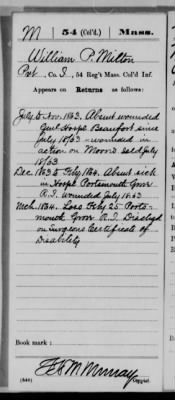 M | 54 (Col'd.) | Mass.
William P. Milton
Pvt, Co. I, 54 Reg't Mass. Col'd Inf.
Appears on
Returns as follows:
July to Nov. 1863. Absent wounded
Genl Hosptl Beaufort since
July 18/63 - wounded in
action on Morris Isld July
18/63
Dec. 1863 to Feby 1864. Absent sick
in Hosptl Portsmouth Grove
R.I. wounded July 18.63
Mch. 1864. Loss Feby 25 Ports-
mouth Grove R.I. Dischgd
on Surgeons Certificate of
Disability
Book mark:
Murray
(546)
Copyist.